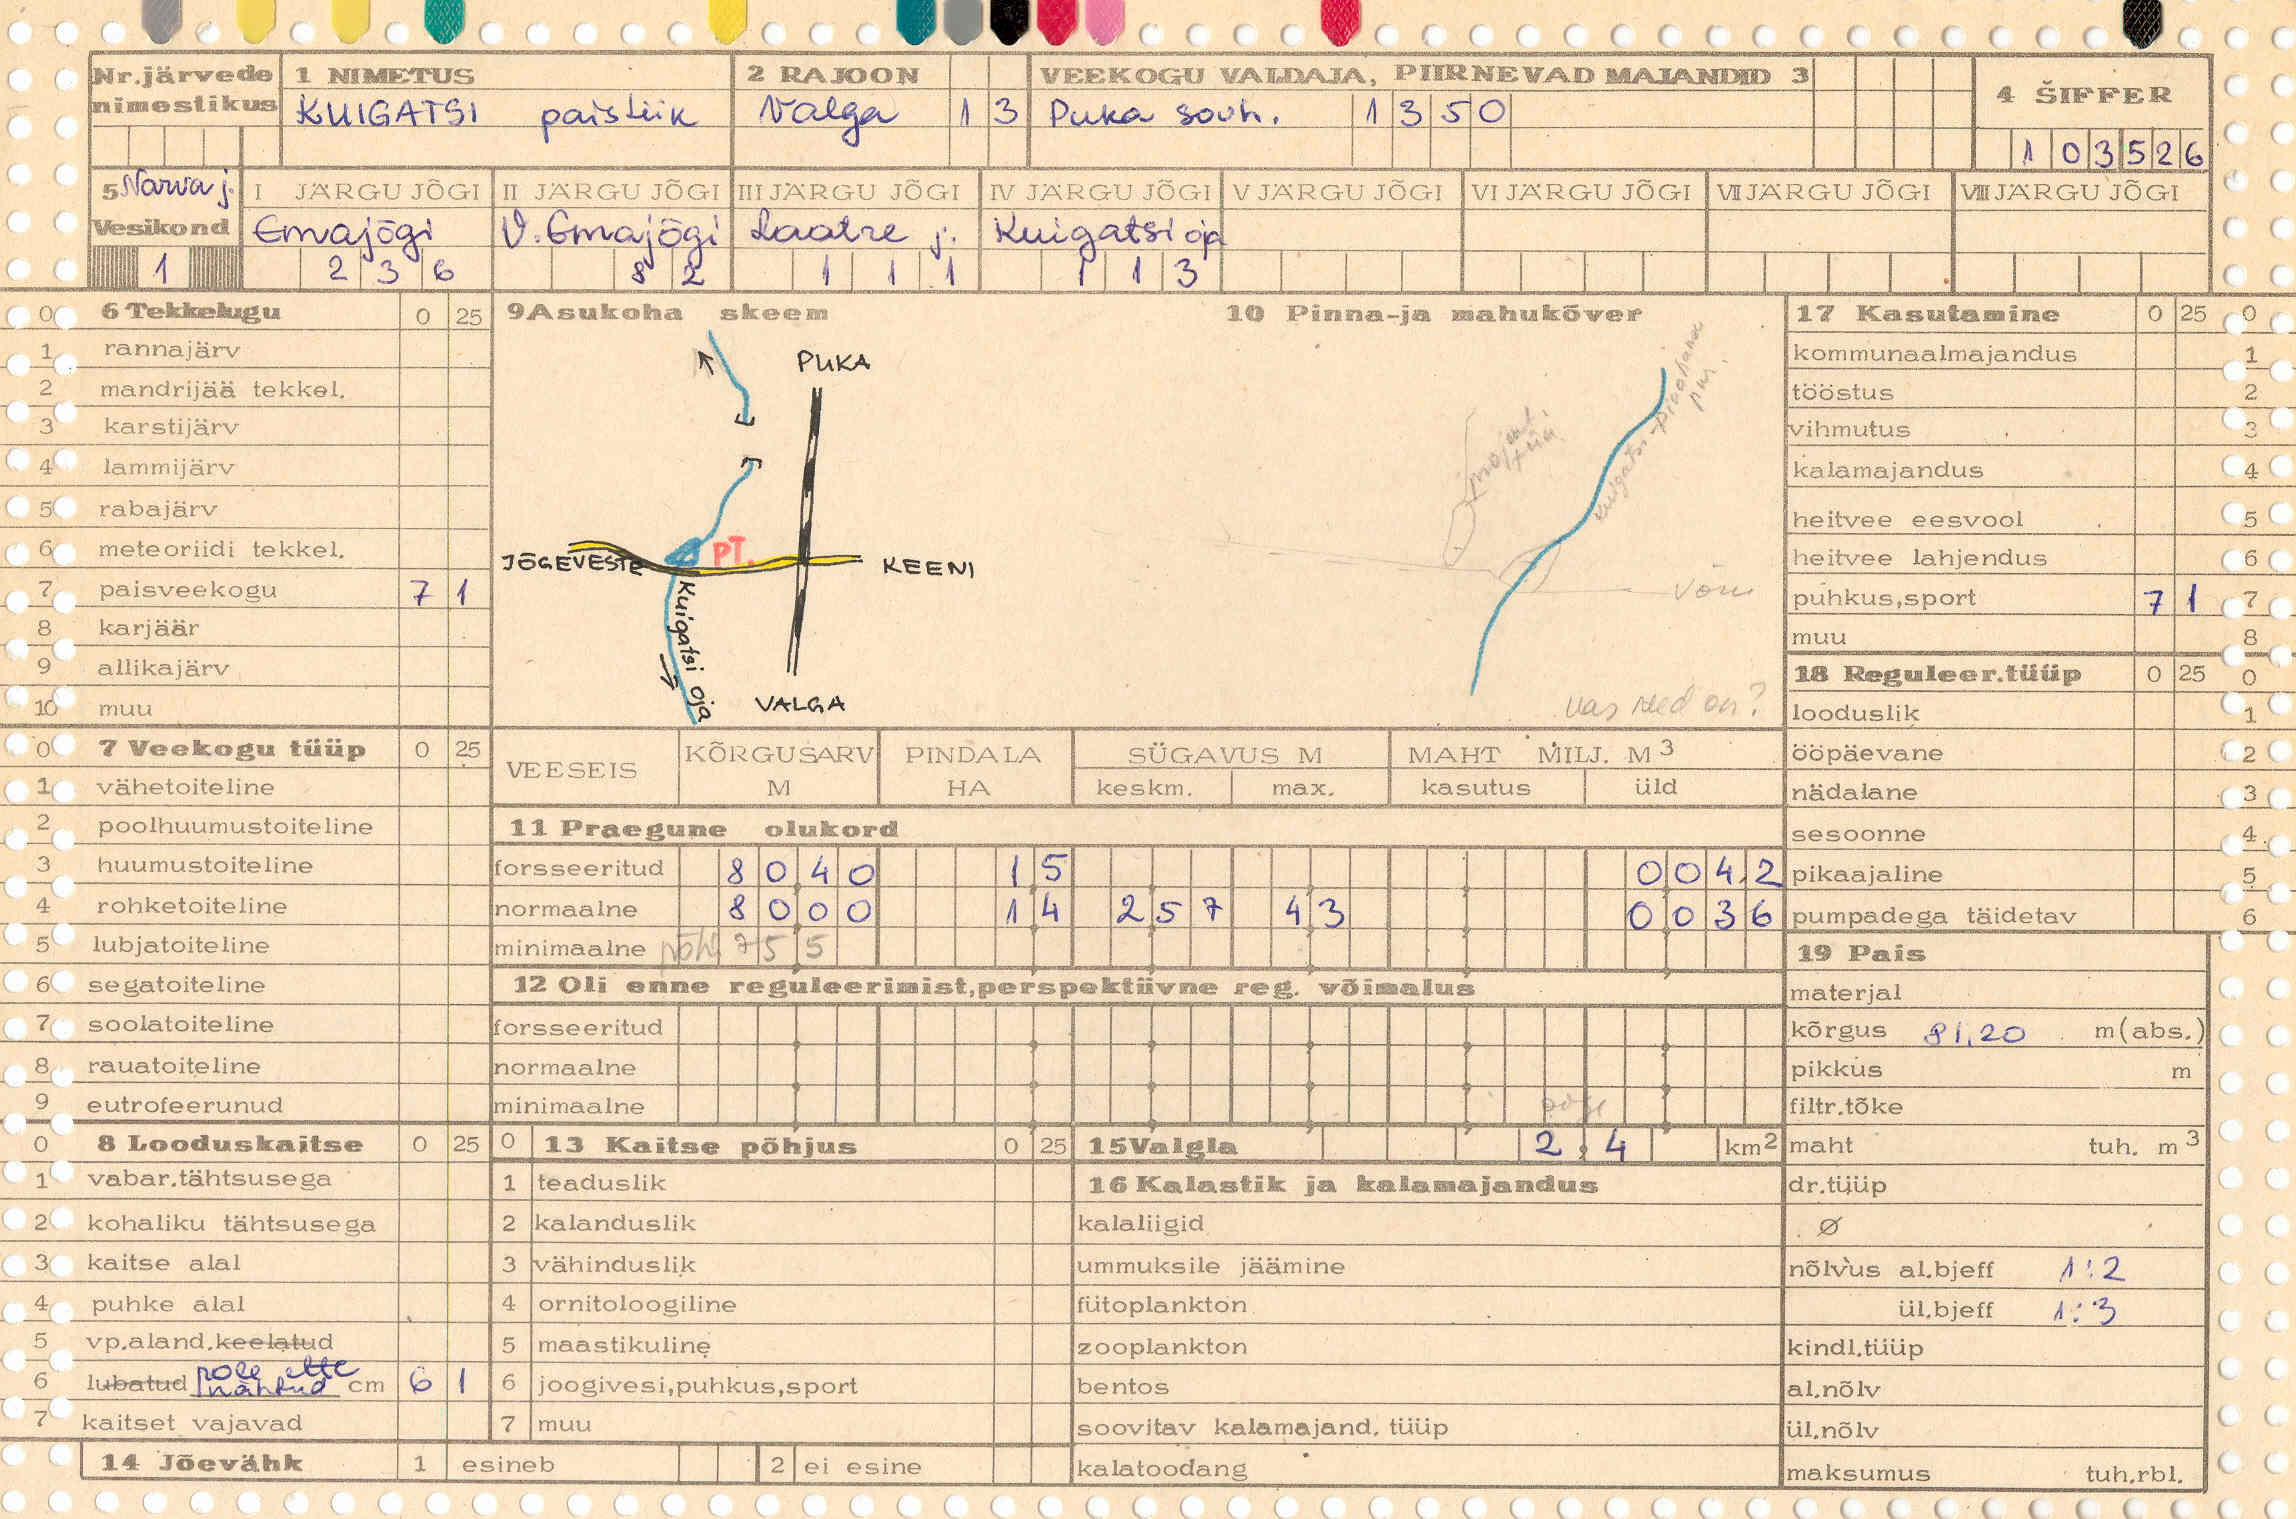 Nr.järvede nimestikus
1 NIMETUS
KUIGATSI paistiik
2 RAJOON
Valga 13
VEEKOGU VALDAJA, PIIRNEVAD MAJANDID 3
Puka sovh. 1350
4 ŠIFFER
103526
5 Narva j.
Vesikond
1
I JÄRGU JÕGI
Emajõgi
236
II JÄRGU JÕGI
V. Emajõgi
82
III JÄRGU JÕGI
Laatre j.
111
IV JÄRGU JÕGI
Kuigatsi oja
113
V JÄRGU JÕGI
VI JÄRGU JÕGI
VII JÄRGU JÕGI
VIII JÄRGU JÕGI
0 6 Tekkelugu 0 25
1 rannajärv
2 mandrijää tekkel.
3 karstijärv
4 lammijärv
5 rabajärv
6 meteoriidi tekkel.
7 paisveekogu 7 1
8 karjäär
9 allikajärv
10 muu
0 7 Veekogu tüüp 0 25
1 vähetoiteline
2 poolhuumustoiteline
3 huumustoiteline
4 rohketoiteline
5 lubjatoiteline
6 segatoiteline
7 soolatoiteline
8 rauatoiteline
9 eutrofeerunud
0 8 Looduskaitse 0 25
1 vabar.tähtsusega
2 kohaliku tähtsusega
3 kaitse alal
4 puhke alal
5 vp.aland.keelatud
6 lubatud pole ette nähtud cm 6 1
7 kaitset vajavad
14 Jõevähk 1 esineb 2 ei esine
9 Asukoha skeem
PUKA
JÕGEVESTE
PT.
KEENI
Kuigatsi oja
VALGA
10 Pinna-ja mahukõver
Kuigatsi
Võru
kas need on?
VEESEIS
KÕRGUSARV M
PINDALA HA
SÜGAVUS M
keskm. max.
MAHT MILJ. M3
kasutus üld
11 Praegune olukord
forsseeritud 8040 15 004,2
normaalne 8000 14 257 43 0036
minimaalne põhi 755
12 Oli enne reguleerimist,perspektiivne reg. võimalus
forsseeritud
normaalne
minimaalne
0 13 Kaitse põhjus 0 25
1 teaduslik
2 kalanduslik
3 vähinduslik
4 ornitoloogiline
5 maastikuline
6 joogivesi,puhkus,sport
7 muu
15 Valgla 2,4 km2
16 Kalastik ja kalamajandus
kalaliigid
ummuksile jäämine
fütoplankton
zooplankton
bentos
soovitav kalamajand. tüüp
kalatoodang
17 Kasutamine 0 25 0
kommunaalmajandus 1
tööstus 2
vihmutus 3
kalamajandus 4
heitvee eesvool 5
heitvee lahjendus 6
puhkus,sport 7 1 7
muu 8
18 Reguleer.tüüp 0 25 0
looduslik 1
ööpäevane 2
nädalane 3
sesoonne 4
pikaajaline 5
pumpadega täidetav 6
19 Pais
materjal
kõrgus 81,20 m(abs.)
pikkus m
filtr.tõke
maht tuh. m3
dr.tüüp
ø
nõlvus al.bjeff 1:2
ül.bjeff 1:3
kindl.tüüp
al.nõlv
ül.nõlv
maksumus tuh.rbl.